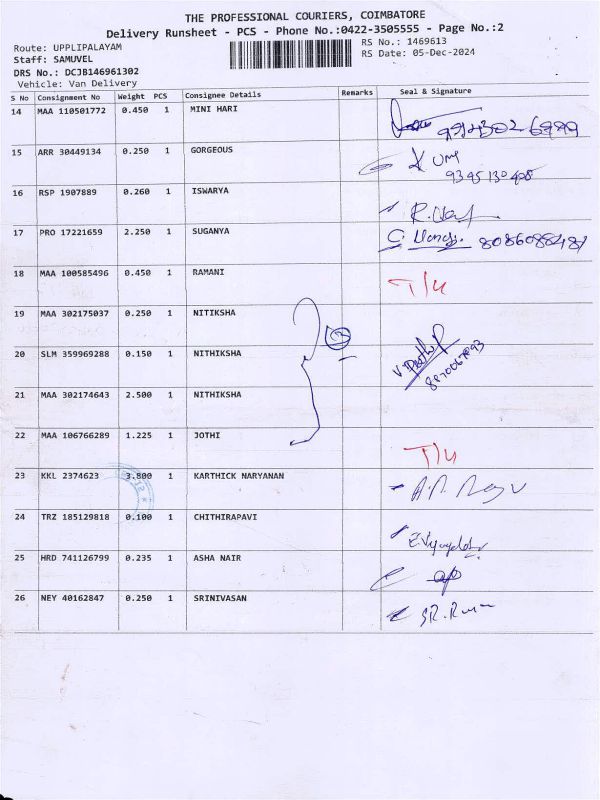 THE PROFESSIONAL COURIERS, COIMBATORE
Delivery Runsheet - PCS - Phone No.:0422-3505555 - Page No.:2
Route: UPPLIPALAYAM
RS No.: 1469613
Staff: SAMUVEL
RS Date: 05-Dec-2024
DRS No.: DCJB146961302
Vehicle: Van Delivery
S No Consignment No Weight PCS Consignee Details Remarks Seal & Signature
14 MAA 110501772 0.450 1 MINI HARI
15 ARR 30449134 0.250 1 GORGEOUS
16 RSP 1907889 0.260 1 ISWARYA
17 PRO 17221659 2.250 1 SUGANYA 8086088487
18 MAA 100585496 0.450 1 RAMANI T/u
19 MAA 302175037 0.250 1 NITIKSHA
20 SLM 359969288 0.150 1 NITHIKSHA
21 MAA 302174643 2.500 1 NITHIKSHA
22 MAA 106766289 1.225 1 JOTHI T/u
23 KKL 2374623 3.800 1 KARTHICK NARYANAN
24 TRZ 185129818 0.100 1 CHITHIRAPAVI
25 HRD 741126799 0.235 1 ASHA NAIR
26 NEY 40162847 0.250 1 SRINIVASAN